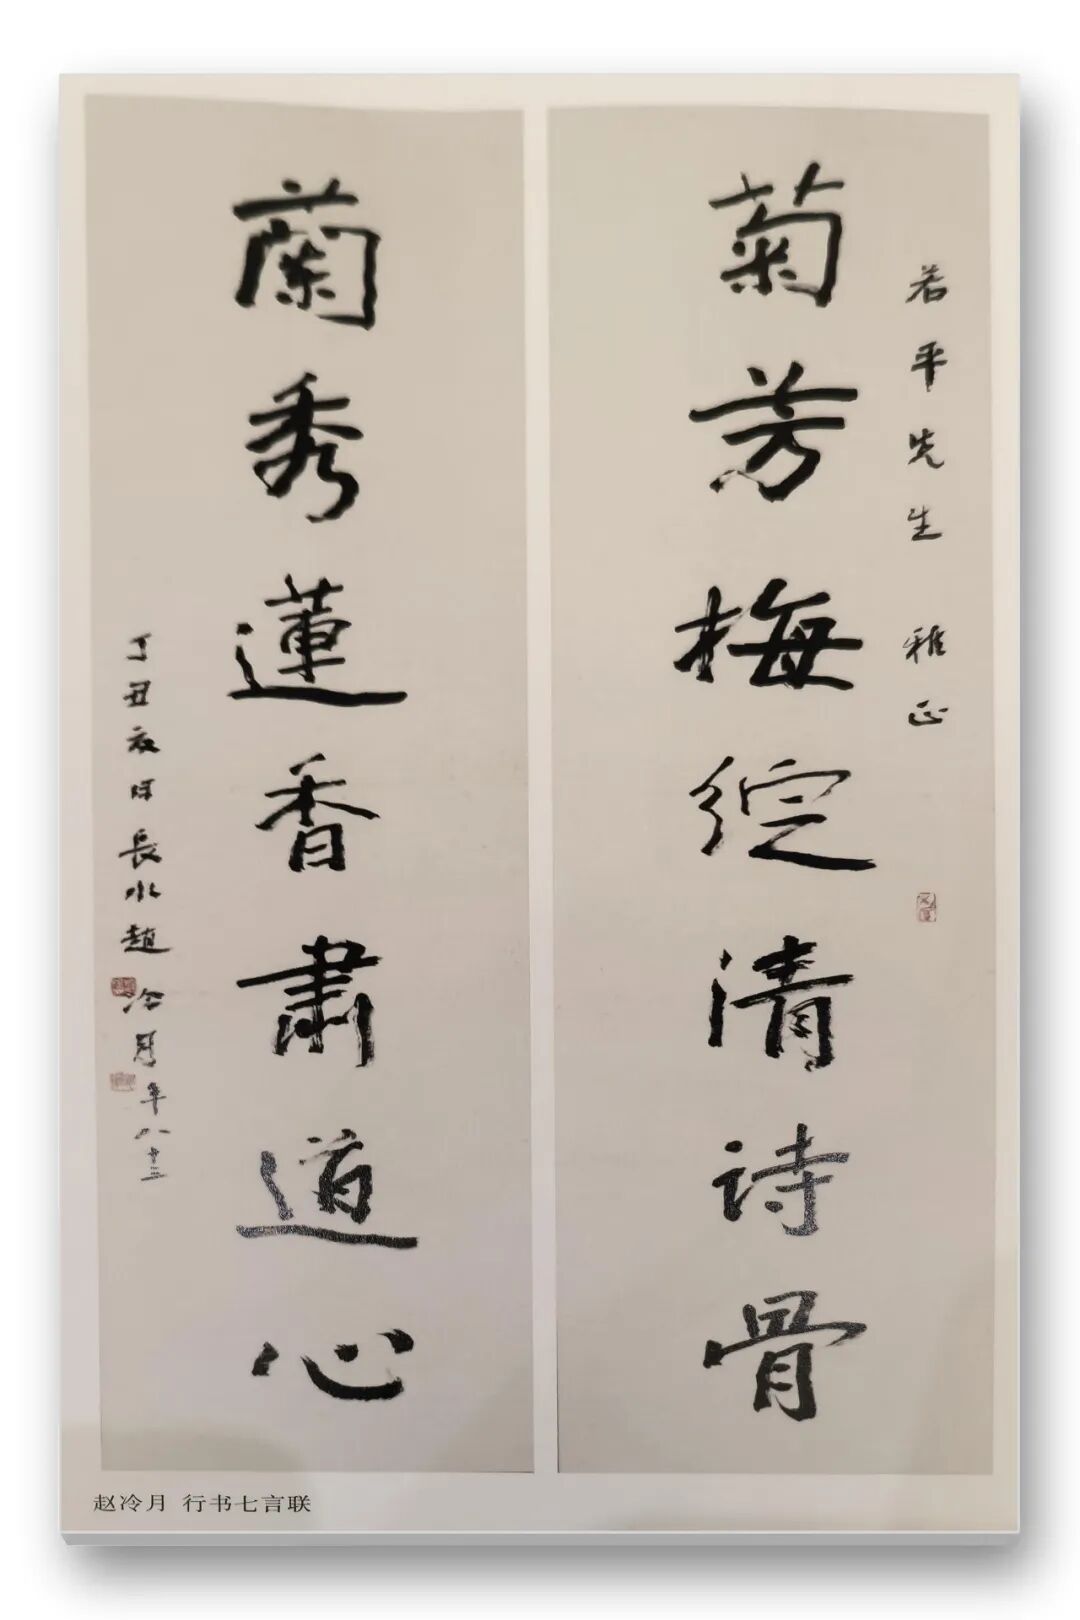 若平先生 雅正
菊芳梅綻清诗骨
蘭秀蓮香肅道心
丁丑秋月長水趙冷月年八十三
赵冷月 行书七言联